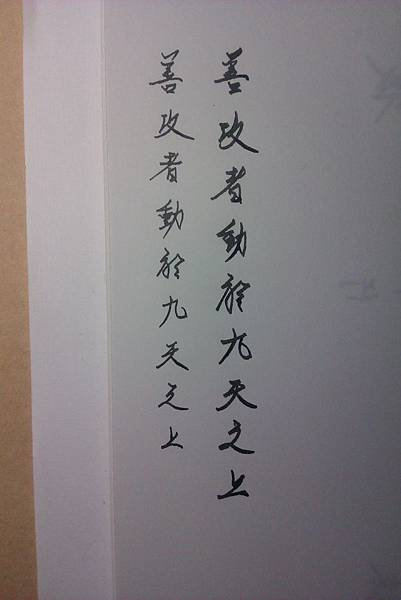 善攻者動於九天之上
善攻者動於九天之上